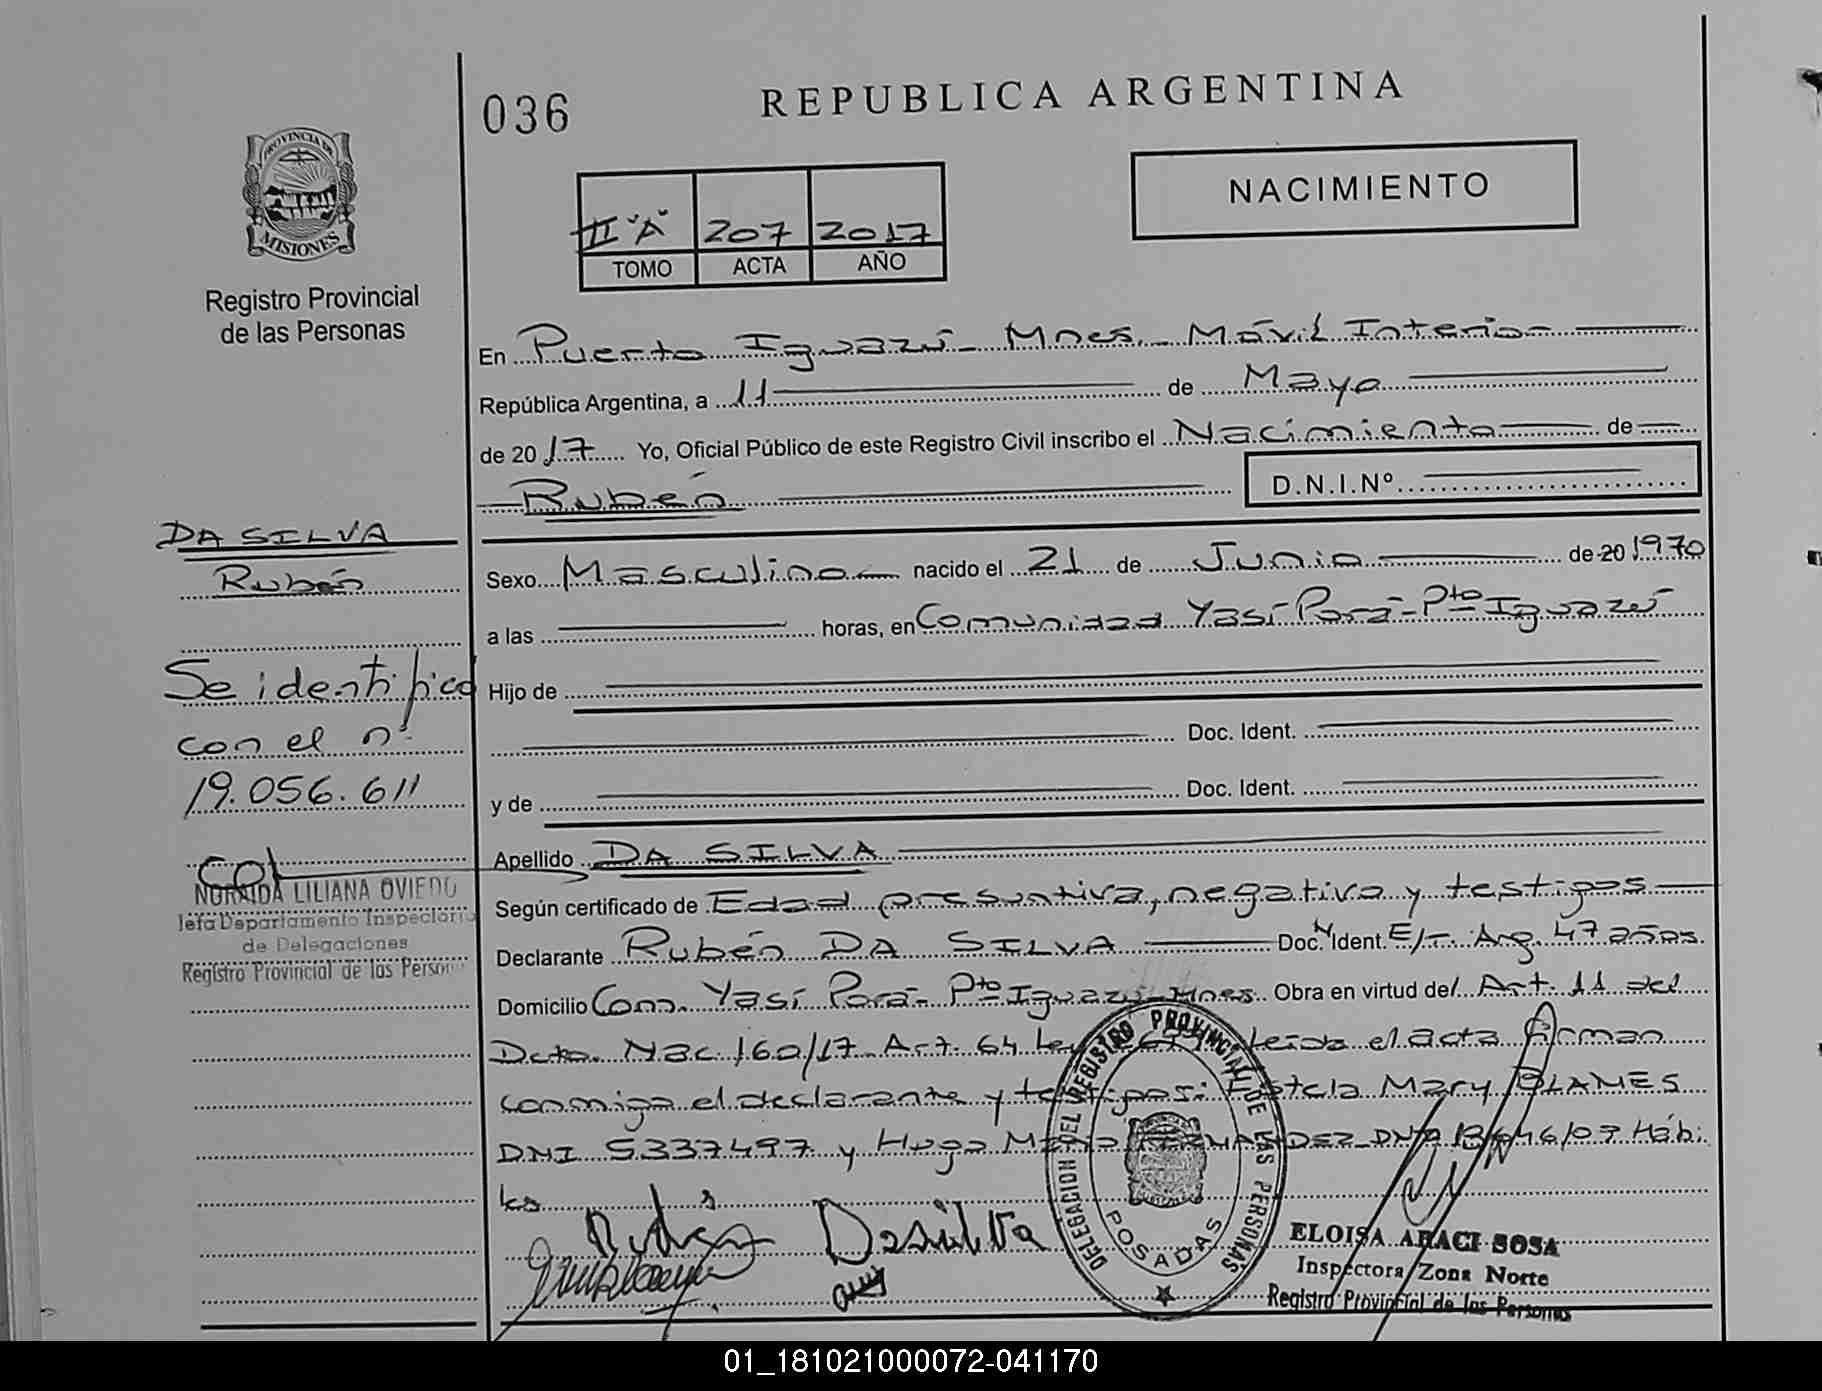 036
REPUBLICA ARGENTINA
PROVINCIA DE
MISIONES
Registro Provincial
de las Personas
NACIMIENTO
II "A" 207 2017
TOMO ACTA AÑO
En Puerto Iguazú - Mnes. - Móvil Interior
República Argentina, a 11 de Mayo
de 2017 Yo, Oficial Público de este Registro Civil inscribo el Nacimiento de
Rubén
D.N.I.Nº
DA SILVA
Rubén
Sexo Masculino nacido el 21 de Junio de 20 1970
a las horas, en Comunidad Yasí Porá - Pto Iguazú
Hijo de
Doc. Ident.
y de Doc. Ident.
Se identifica
con el nº
19.056.611
Apellido DA SILVA
NORAIDA LILIANA OVIEDO
Jefa Departamento Inspectoria
de Delegaciones
Registro Provincial de las Personas
Según certificado de Edad presuntiva, negativa y testigos
Declarante Rubén DA SILVA Doc. Ident. Arg. 47 años
Domicilio Com. Yasí Porá - Pto Iguazú - Mnes. Obra en virtud del Art. 11 del
Dcto. Nac 160/17 Art. 64 Ley leída el acta firman
conmigo el declarante y testigos: Estela Mary BLAMES
DNI 5337497 y Hugo DNI Hábi
les
Rubén Dasilva
DELEGACION DEL REGISTRO PROVINCIAL DE LAS PERSONAS
POSADAS
ELOISA ARACI SOSA
Inspectora Zona Norte
Registro Provincial de las Personas
01_181021000072-041170